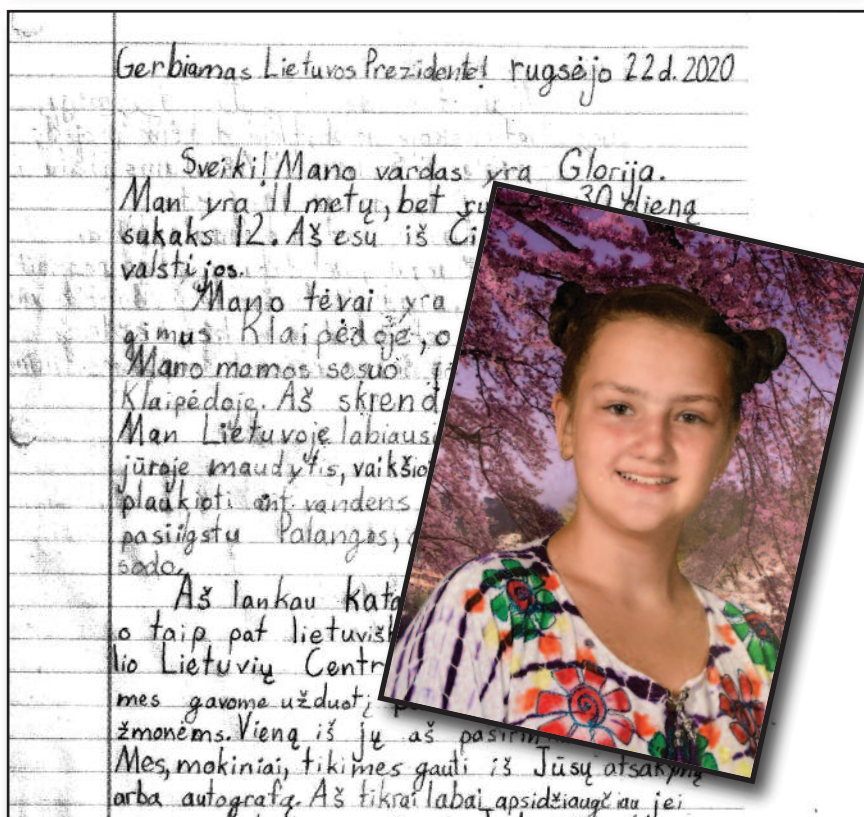 Gerbiamas Lietuvos Prezidente! rugsėjo 22 d. 2020
Sveiki! Mano vardas yra Glorija.
Man yra 11 metų, bet 30 dieną
sukaks 12. Aš esu iš
valstijos.
Mano tėvai yra
gimus Klaipėdoje, o
Mano mamos sesuo
Klaipėdoje. Aš
Man Lietuvoje
jūroje maudytis,
plaukioti ant vandens
pasiilgstu Palangos,
sodo.
Aš lankau
o taip pat
lio Lietuvių
mes gavome užduotį
žmonėms. Vieną iš jų aš
Mes, mokiniai, tikimės gauti iš Jūsų atsakymą
arba autografą. Aš tikrai labai apsidžiaugčiau jei